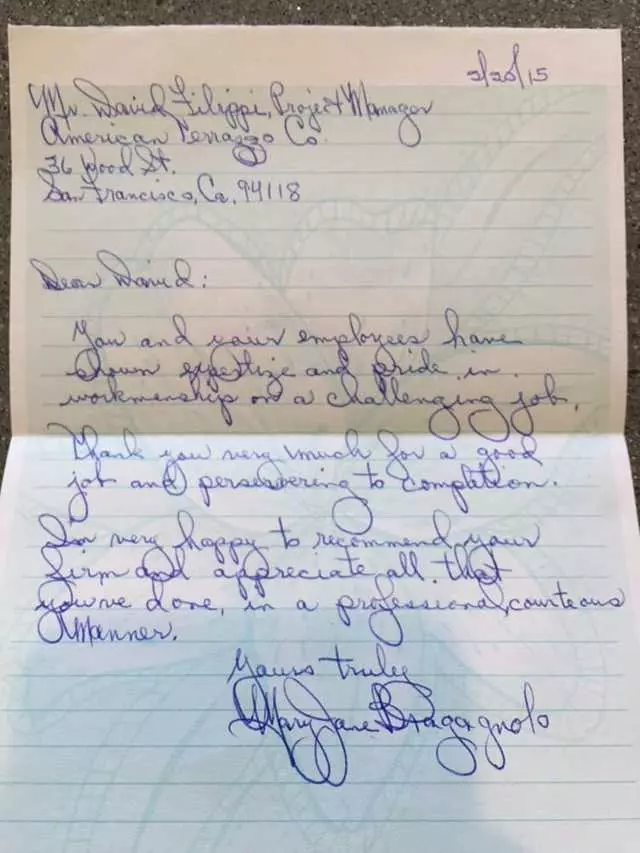 2/20/15
Mr. David Filippi, Project Manager
American Terrazzo Co.
36 Wood St.
San Francisco, Ca. 94118
Dear David:
You and your employees have
shown expertize and pride in
workmenship on a challenging job.
Thank you very much for a good
job and persevering to compleation.
I'm very happy to recommend your
firm and appreciate all that
you've done, in a professional, courteous
manner.
Yours truly
Mary Jane Bragagnolo